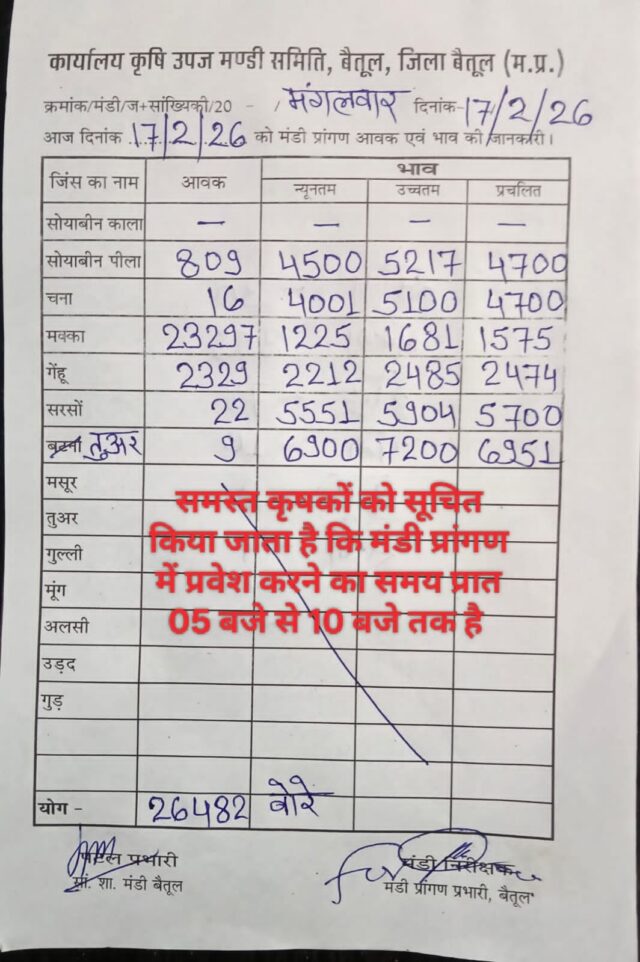 कार्यालय कृषि उपज मण्डी समिति, बैतूल, जिला बैतूल (म.प्र.)
क्रमांक/मंडी/ज+सांख्यिकी/20 - / मंगलवार दिनांक-17/2/26
आज दिनांक 17/2/26 को मंडी प्रांगण आवक एवं भाव की जानकारी।
जिंस का नाम आवक भाव
न्यूनतम उच्चतम प्रचलित
सोयाबीन काला — — — —
सोयाबीन पीला 809 4500 5217 4700
चना 16 4001 5100 4700
मक्का 23297 1225 1681 1575
गेंहू 2329 2212 2485 2474
सरसों 22 5551 5904 5700
तुअर 9 6900 7200 6951
मसूर
तुअर
गुल्ली
मूंग
अलसी
उड़द
गुड़
समस्त कृषकों को सूचित
किया जाता है कि मंडी प्रांगण
में प्रवेश करने का समय प्रात
05 बजे से 10 बजे तक है
योग - 26482 बोरे
प्रभारी मंडी निरीक्षक
शा. मंडी बैतूल मंडी प्रांगण प्रभारी, बैतूल